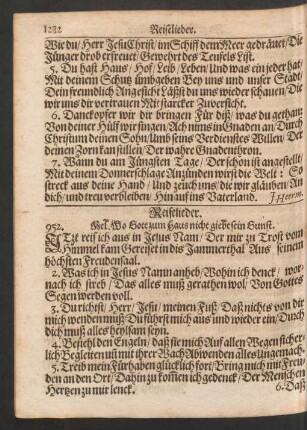 1282 Reiselieder.
Wie du/ Herr Jesu Christ/ im Schiff dem Meer gedräuet/ Die
Jünger drob erfreuet/ Gewehrt des Teufels List.
5. Du hast Haus/ Hof/ Leib/ Leben/ Und was ein jeder hat/
Mit deinem Schutz ümbgeben Bey uns und unser Stadt
Dein freundlich Angesicht Läßst du uns wieder schauen/ Die
wir uns dir vertrauen Mit starcker Zuversicht.
6. Danckopfer wir dir bringen Für diß/ was du gethan:
Von deiner Hülf wir singen/ Ach nims in Gnaden an/ Durch
Christum deinen Sohn/ Umb seins Verdienstes Willen Den
deinen Zorn kan stillen/ Der wahre Gnadenthron.
7. Wann du am Jüngsten Tage/ Der schon ist angestellt
Mit deinem Donnerschlage Anzünden wirst die Welt: So
streck aus deine Hand/ Und zeuch uns/ die wir gläuben/ An
dich/ und treu verbleiben/ Hinauf ins Vaterland. J. Heerm.
Reiselieder.
952. Mel. Wo Gott zum Haus nicht giebt sein Gunst.
JTzt reis ich aus in Jesus Nam/ Der mir zu Trost vom
Himmel kam Gereiset in dis Jammerthal Aus seinem
höchsten Freudensaal.
2. Was ich in Jesus Namn anheb/ Wohin ich denck/ wor-
nach ich streb/ Das alles muß gerathen wol/ Von Gottes
Segen werden voll.
3. Du richtst/ Herr Jesu/ meinen Fuß/ Daß nichts von dir
mich wenden muß/ Du führst mich aus und wieder ein/ Durch
dich muß alles heylsam seyn.
4. Befiehl den Engeln/ daß sie mich Auf allen Wegen sicher-
lich Begleiten und mit ihrer Wach Abwenden alles Ungemach.
5. Treib mein Fürhaben glücklich fort/ Bring mich mit Freu-
den an den Ort/ Dahin zu kommen ich gedenck/ Der Menschen
Hertzen zu mir lenck.
6. Daß